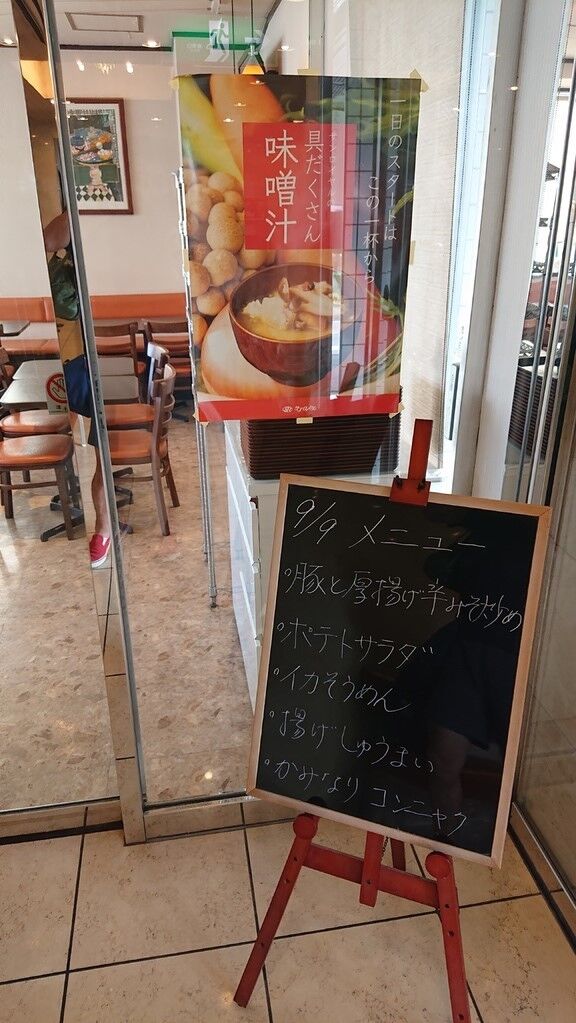 一日のスタートは
この一杯から
サンロイヤルの
具だくさん
味噌汁
9/9 メニュー
°豚と厚揚げ辛みそ炒め
°ポテトサラダ
°イカそうめん
°揚げしゅうまい
°かみなりコンニャク